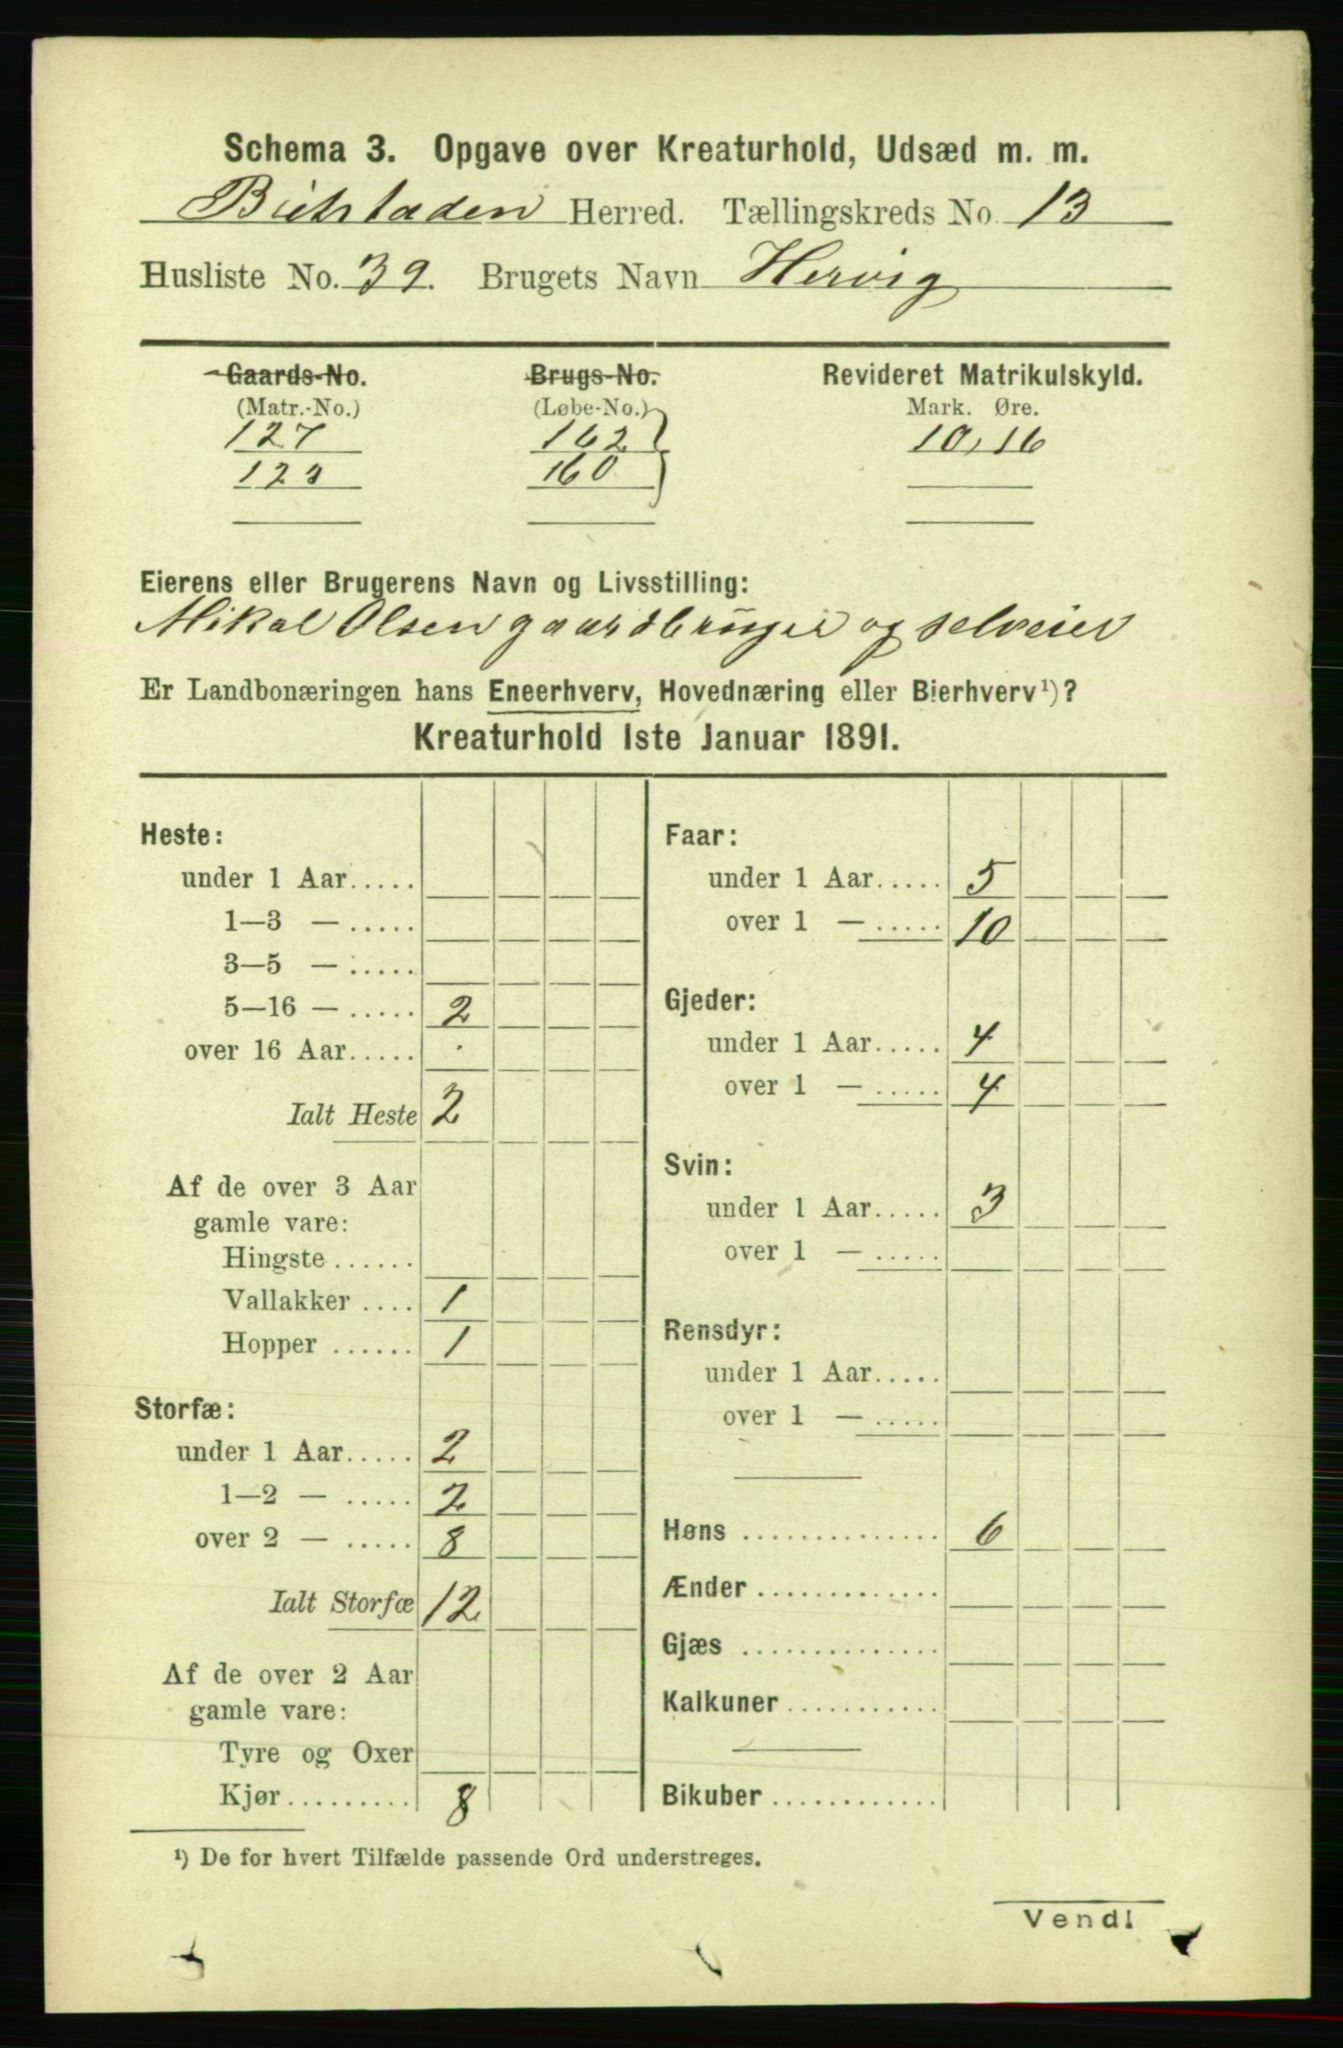 Schema 3. Opgave over Kreaturhold, Udsæd m. m.
Herred. Tællingskreds No. 13
Husliste No. 39. Brugets Navn Hervig
Gaards-No. Brugs-No. Revideret Matrikulskyld.
(Matr.-No.) (Løbe-No.) Mark. Øre.
127 162 10,16
160
Eierens eller Brugerens Navn og Livsstilling:
Mikal Olsen gaardbruger og selveier
Er Landbonæringen hans Eneerhverv, Hovednæring eller Bierhverv¹)?
Kreaturhold 1ste Januar 1891.
Heste:
under 1 Aar.....
1—3 — .....
3—5 — .....
5—16 — ..... 2
over 16 Aar.....
Ialt Heste 2
Af de over 3 Aar
gamle vare:
Hingste ......
Vallakker .... 1
Hopper ...... 1
Storfæ:
under 1 Aar..... 2
1—2 — ..... 2
over 2 — ..... 8
Ialt Storfæ 12
Af de over 2 Aar
gamle vare:
Tyre og Oxer
Kjør......... 8
Faar:
under 1 Aar..... 5
over 1 — ..... 10
Gjeder:
under 1 Aar..... 4
over 1 — ..... 4
Svin:
under 1 Aar..... 3
over 1 — .....
Rensdyr:
under 1 Aar.....
over 1 — .....
Høns .............. 6
Ænder .............
Gjæs ..............
Kalkuner ...........
Bikuber ............
¹) De for hvert Tilfælde passende Ord understreges.
Vend!